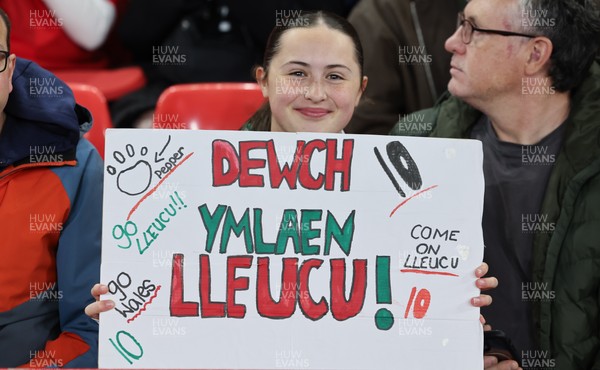 Pepper
DEWCH
10
YMLAEN
go
LLEUCU!!
COME
ON
LLEUCU
LLEUCU!
go
Wales
10
10
HUW
EVANS